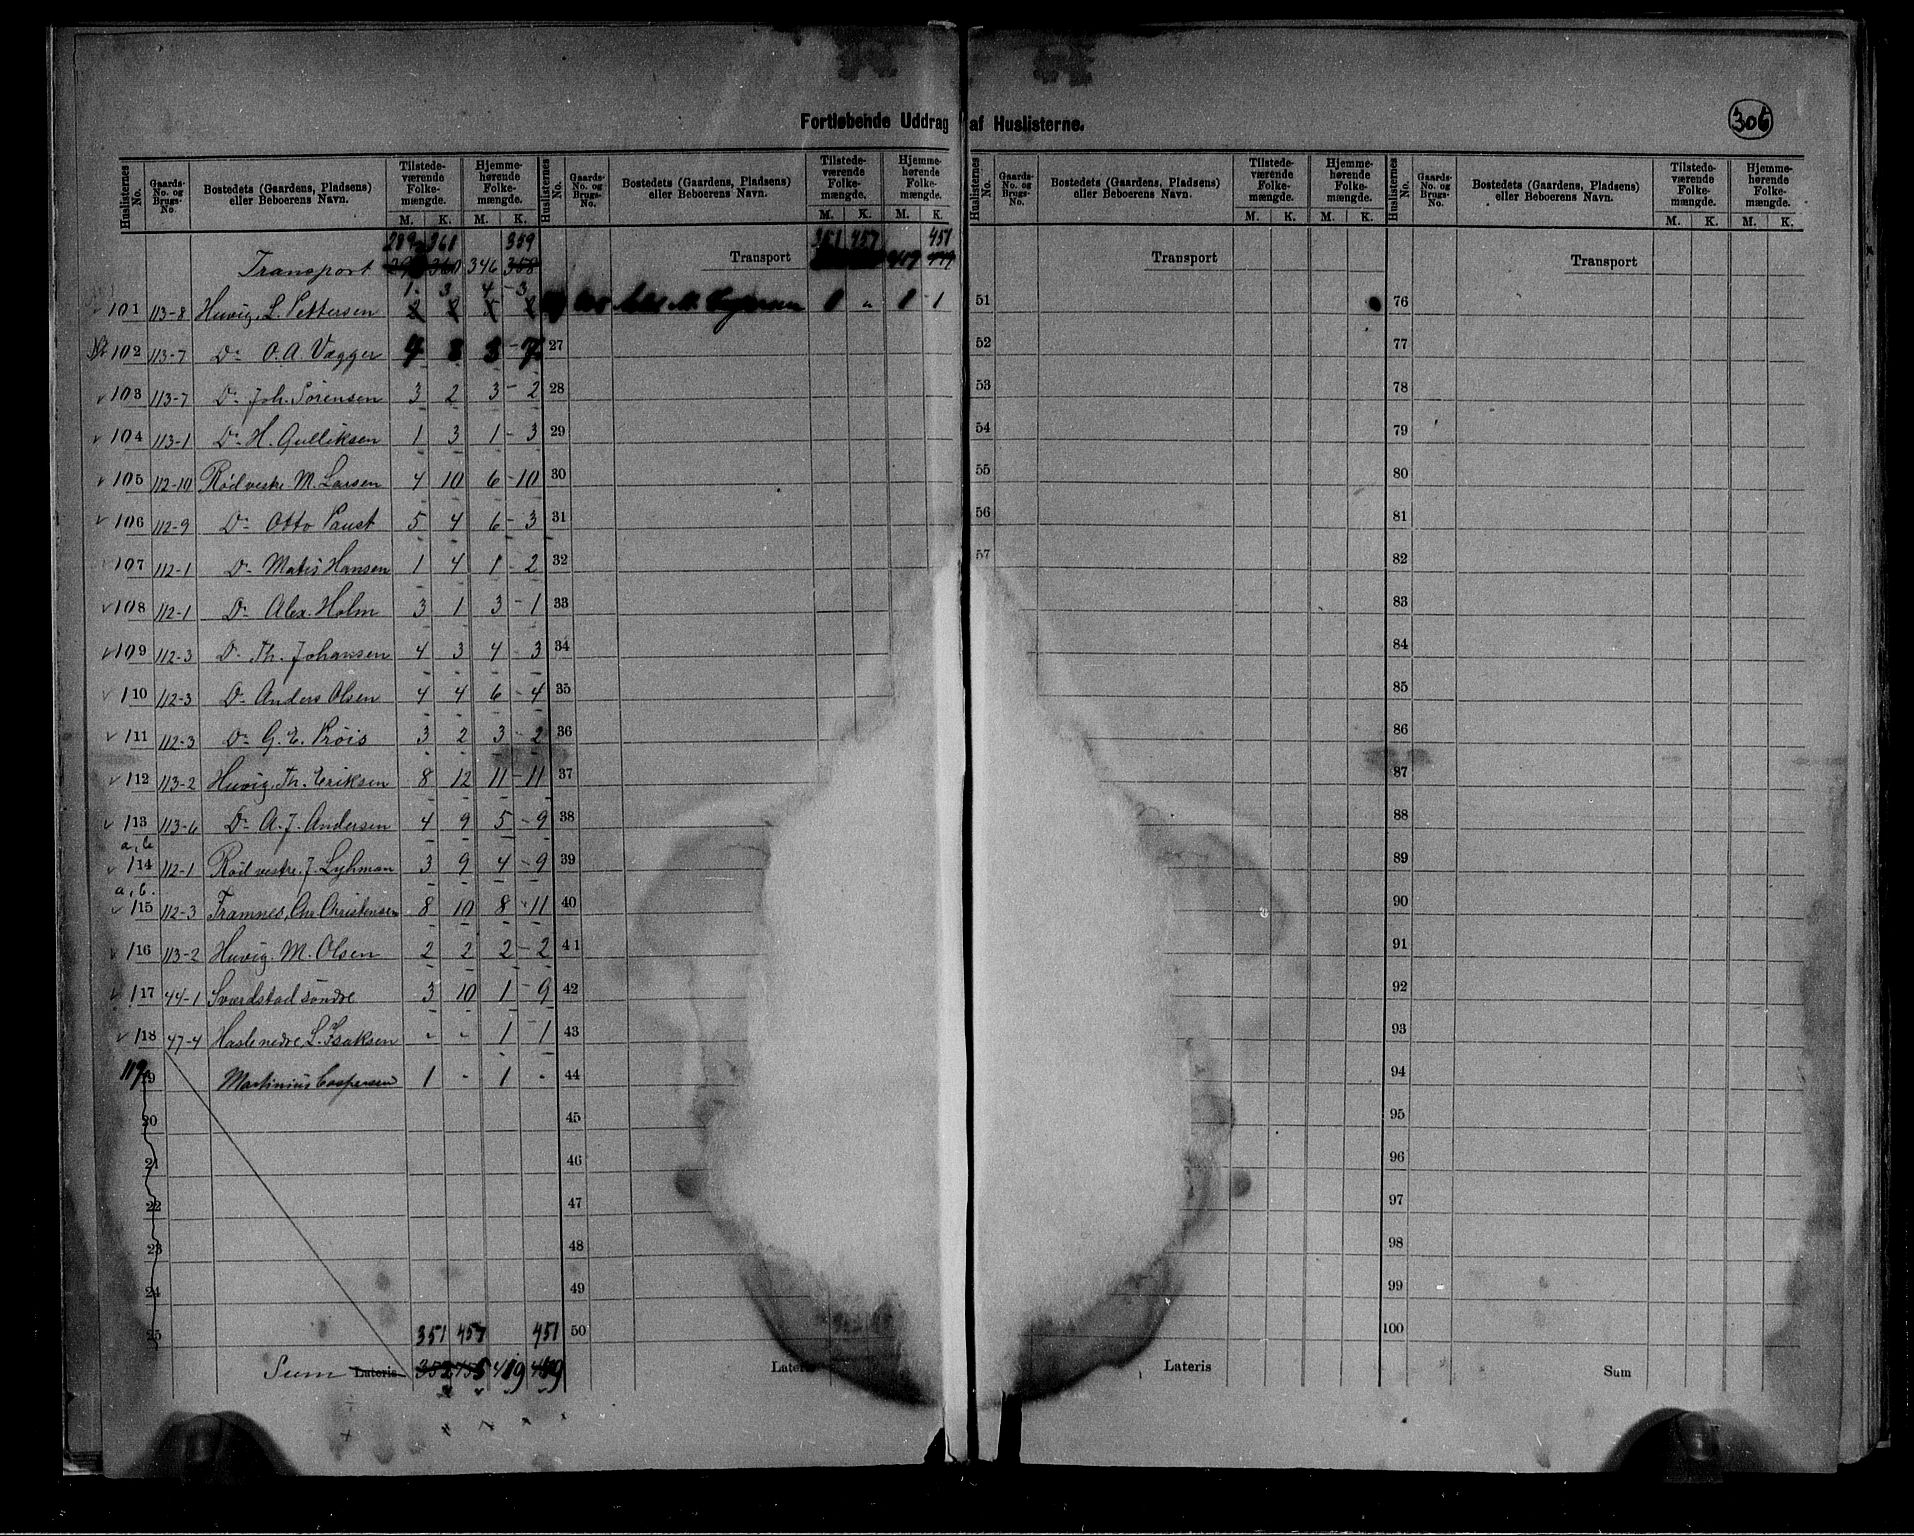 Fortløbende Uddrag af Huslisterne.
306
Huslisternes No. Gaards- No. og Brugs- No. Bostedets (Gaardens, Pladsens) eller Beboerens Navn. Tilstede- værende Folke- mængde. M. K. Hjemme- hørende Folke- mængde. M. K.
Huslisternes No. Gaards- No. og Brugs- No. Bostedets (Gaardens, Pladsens) eller Beboerens Navn. Tilstede- værende Folke- mængde. M. K. Hjemme- hørende Folke- mængde. M. K.
Huslisternes No. Gaards- No. og Brugs- No. Bostedets (Gaardens, Pladsens) eller Beboerens Navn. Tilstede- værende Folke- mængde. M. K. Hjemme- hørende Folke- mængde. M. K.
Huslisternes No. Gaards- No. og Brugs- No. Bostedets (Gaardens, Pladsens) eller Beboerens Navn. Tilstede- værende Folke- mængde. M. K. Hjemme- hørende Folke- mængde. M. K.
289 361 359
Transport 360 346 358
1 3 4 - 3
101 113-8 Huvig, L. Pettersen 2 2 5 2
102 113-7 Do O. A. Vagger 4 8 3 - 7
103 113-7 Do Joh. Sörensen 3 2 3 - 2
104 113-1 Do H. Gulliksen 1 3 1 - 3
105 112-10 Röd vestre M. Larsen 4 10 6 - 10
106 112-9 Do Otto Paust 5 4 6 - 3
107 112-1 Do Matis Hansen 1 4 1 - 2
108 112-1 Do Alex. Holm 3 1 3 - 1
109 112-3 Do Th. Johansen 4 3 4 - 3
110 112-3 Do Anders Olsen 4 4 6 - 4
111 112-3 Do G. E. Pröis 3 2 3 - 2
112 113-2 Huvig, Th. Eriksen 8 12 11 - 11
113 113-6 Do A. J. Andersen 4 9 5 - 9
a, b
114 112-1 Röd vestre, J. Lyhman 3 9 4 - 9
a, b.
115 112-3 Framnes, Chr. Christensen 8 10 8 - 11
116 113-2 Huvig. M. Olsen 2 2 2 - 2
117 44-1 Sværdstad söndre 3 10 1 - 9
118 47-4 Hasle nedre, L. Isaksen - - 1 - 1
119 Martinius Caspersen 1 - 1 -
20
21
22
23
24
25
351 457 451
Sum Lateris 352
351 457 451
Transport
1 " 1 - 1
27
28
29
30
31
32
33
34
35
36
37
38
39
40
41
42
43
44
45
46
47
48
49
50
Lateris
Transport
51
52
53
54
55
56
57
Lateris
Transport
76
77
78
79
80
81
82
83
84
85
86
87
88
89
90
91
92
93
94
95
96
97
98
99
100
Sum